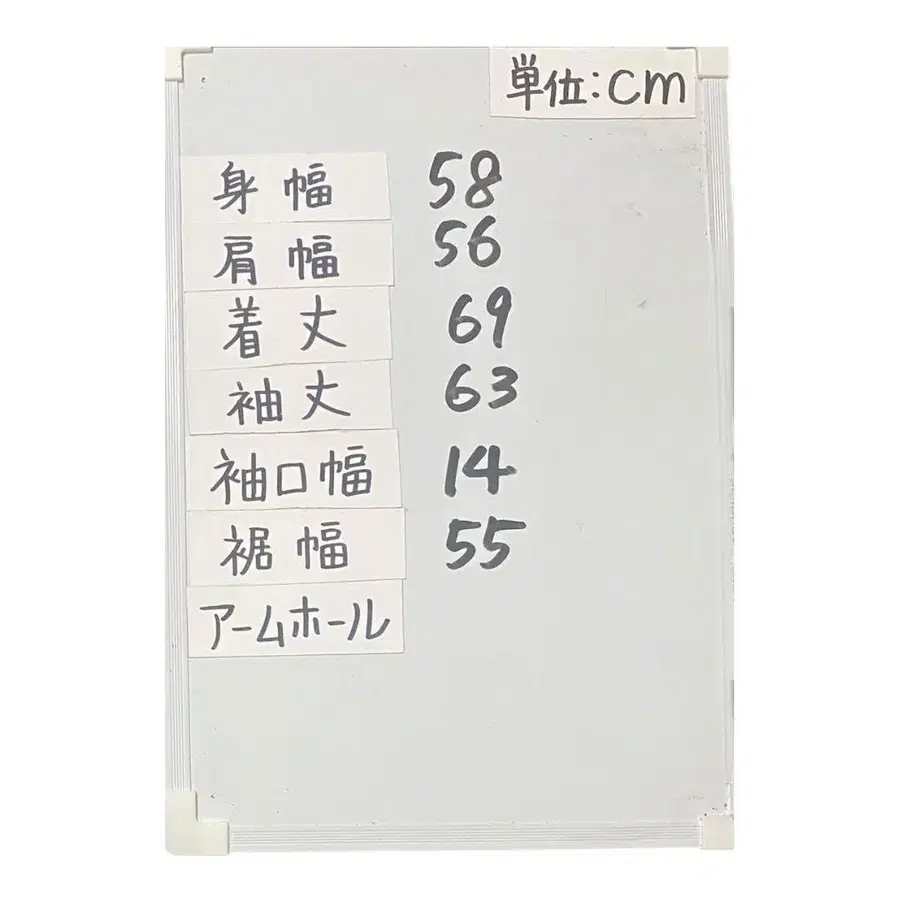 単位:cm
身幅 58
肩幅 56
着丈 69
袖丈 63
袖口幅 14
裾幅 55
アームホール